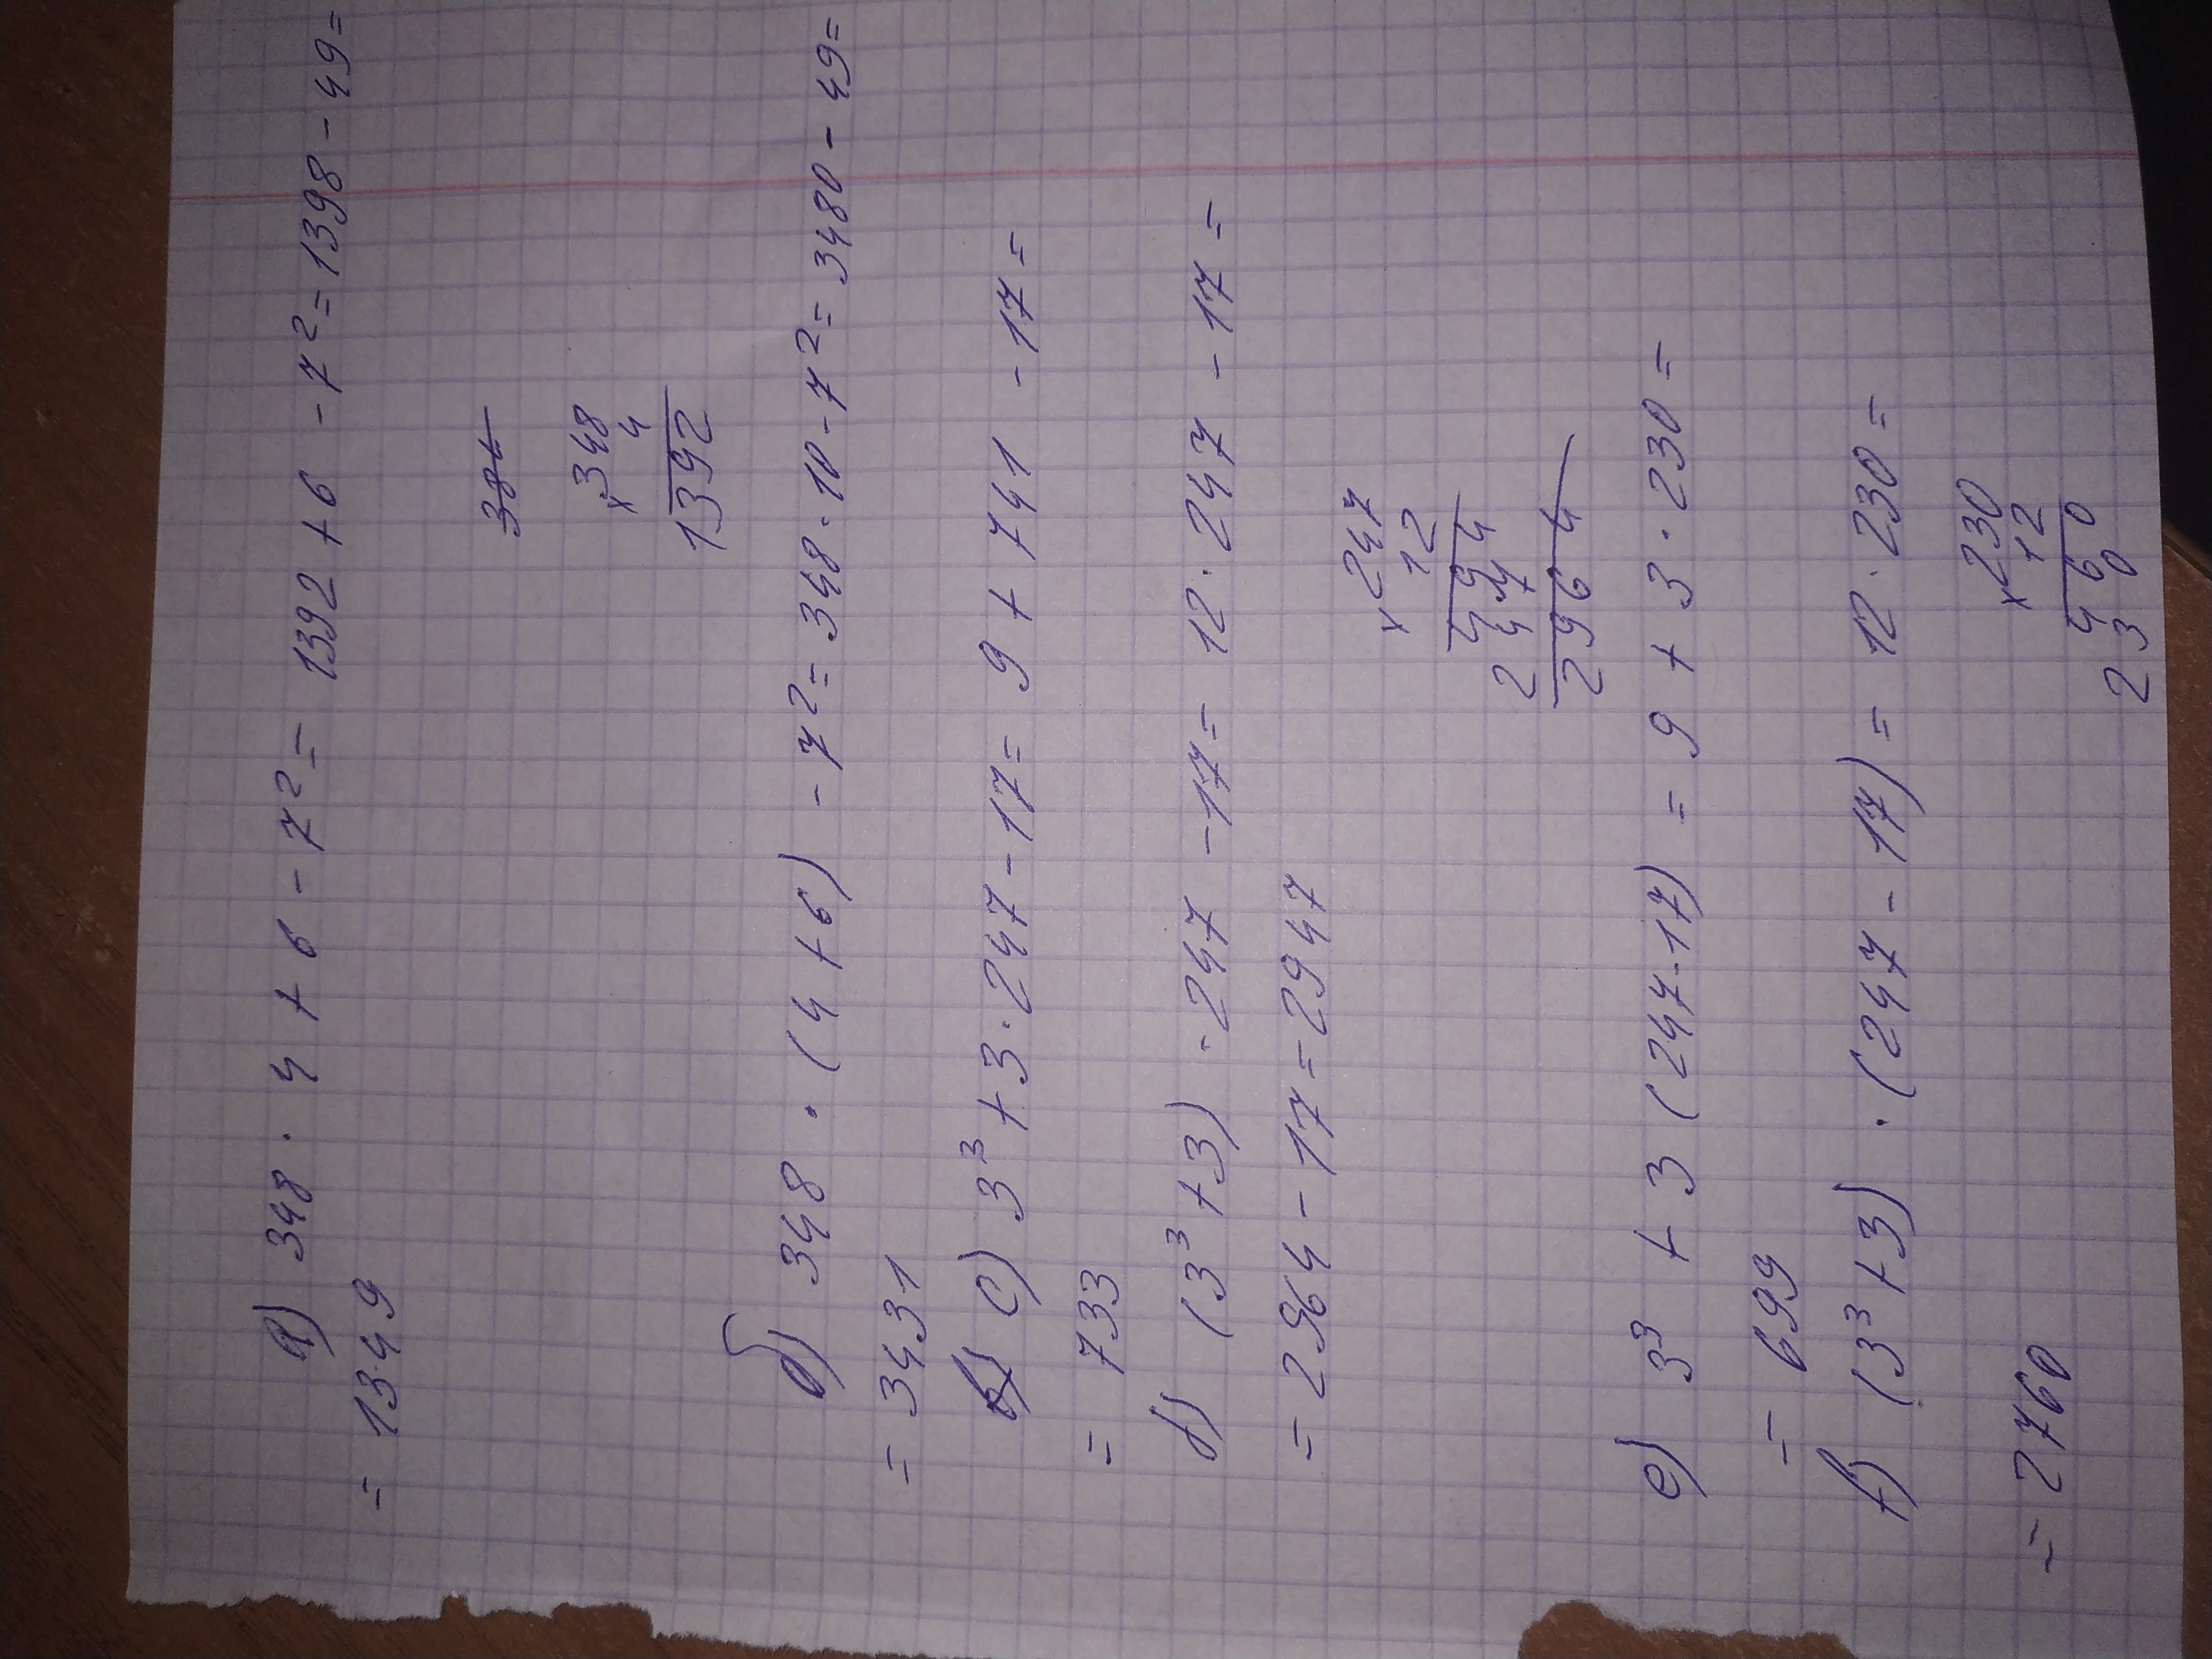 a) 348 · 4 + 6 - 7² = 1392 + 6 - 7² = 1398 - 49 =
= 1349
x 348
4
1392
б) 348 · (4 + 6) - 7² = 348 · 10 - 7² = 3480 - 49 =
= 3431
c) 3³ + 3 · 247 - 17 = 9 + 741 - 17 =
= 733
d) (3³ + 3) · 247 - 17 = 12 · 247 - 17 =
= 2964 - 17 = 2947
x 247
12
494
247
2964
e) 3³ + 3 (247 - 17) = 9 + 3 · 230 =
= 699
f) (3³ + 3) · (247 - 17) = 12 · 230 =
= 2760
x 230
12
460
230